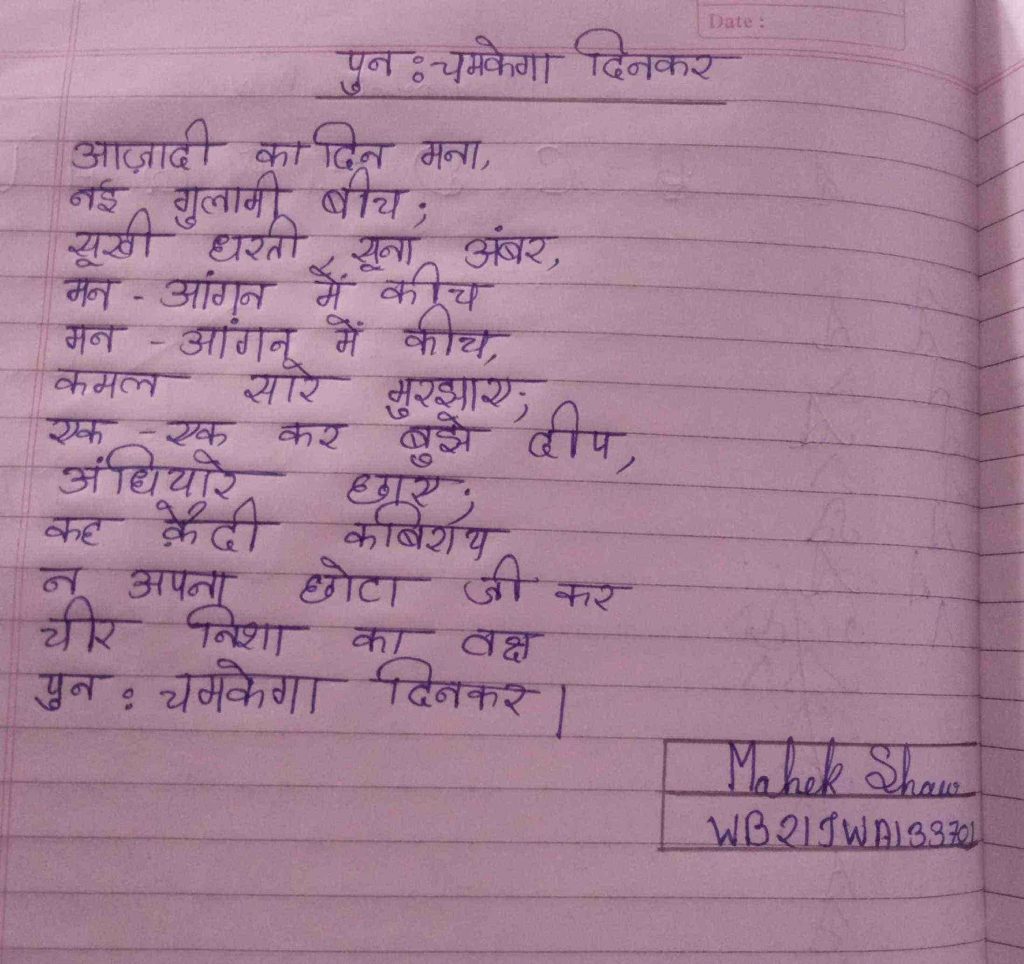 Date :
पुन : चमकेगा दिनकर
आज़ादी का दिन मना,
नई गुलामी बीच ;
सूखी धरती, सूना अंबर,
मन - आंगन में कीच
मन - आंगन में कीच,
कमल सारे मुरझाए;
एक - एक कर बुझे दीप,
अंधियारे छाए;
कह क़ैदी कबिराय
न अपना छोटा जी कर
चीर निशा का वक्ष
पुन : चमकेगा दिनकर |
Mahek Shaw
WB21JWA133702